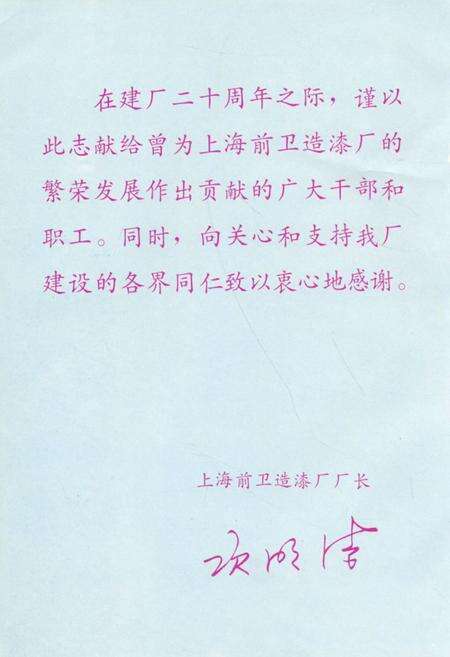 在建厂二十周年之际，谨以
此志献给曾为上海前卫造漆厂的
繁荣发展作出贡献的广大干部和
职工。同时，向关心和支持我厂
建设的各界同仁致以衷心地感谢。
上海前卫造漆厂厂长
项明洁